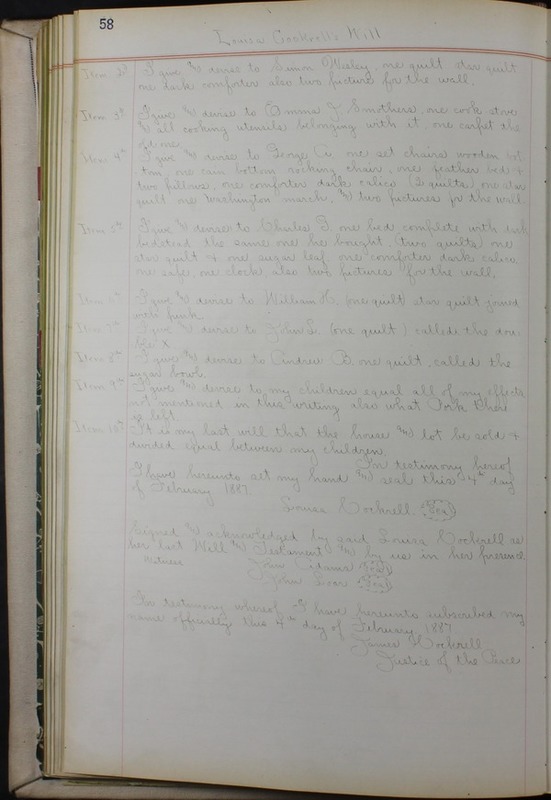 58
Louisa Cockrell's Will
Item 2d I give & devise to Simon Wesley, one quilt star quilt
one dark comforter also two picture for the wall.
Item 3d I give & devise to Emma J. Smothers, one cook stove
& all cooking utensils belonging with it, one carpet the
old one
Item 4th I give & devise to George A. one set chairs wooden bot
tom, one cain bottom rocking chair, one feather bed &
two pillows, one comforter dark calico (2 quilts) one star
quilt one Washington march, & two pictures for the wall
Item 5th I give & devise to Charles T. one bed complete with dark
bedstead the same one he bought, (two quilts) one
star quilt & one sugar leaf one comforter dark calico,
one safe, one clock, also two pictures for the wall,
Item 6th I give & devise to William H. (one quilt star quilt joined
with
Item 7th I give & devise to John L. (one quilt) called the dou
ble x
Item 8th I give & devise to Andrew B. one quilt, called the
sugar bowl.
Item 9th I give & devise to my children equal all of my effects
not mentioned in this writing also what Pork there
is left
Item 10th It is my last will that the house & lot be sold &
divided equal between my children.
In testimony hereof
I have hereunto set my hand & seal this 4th day
of February 1887.
Louisa Cockrell (Seal)
Signed & acknowledged by said Louisa Cockrell as
her last Will & Testament & by us in her presence
Witness John Adams (Seal)
John (Seal)
In testimony whereof I have hereunto subscribed my
name officially this 4th day of February 1887
James Cockrell
Justice of the Peace